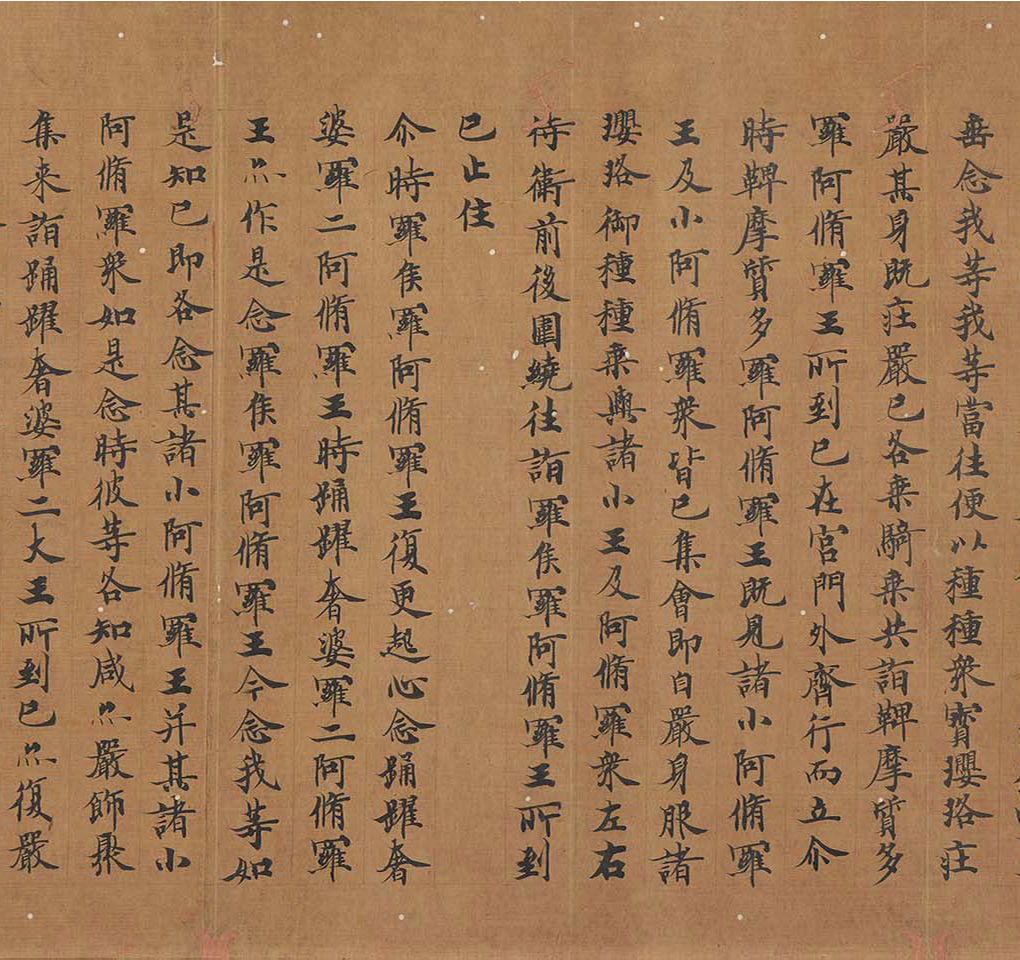 垂念我等我等當往便以種種衆寳瓔珞疘
嚴其身既疘嚴已各乗騎乗共詣鞞摩質多
羅阿脩羅王所到已在宫門外齊行而立尒
時鞞摩質多羅阿脩羅王既見諸小阿脩羅
王及小阿脩羅衆皆已集會即自嚴身服諸
瓔珞御種種乗輿諸小王及阿脩羅衆左右
侍衛前後圍繞往詣羅侯羅阿脩羅王所到
已止住
尒時羅侯羅阿脩羅王復更起心念踊躍奢
婆羅二阿脩羅王時踊躍奢婆羅二阿脩羅
王亦作是念羅侯羅阿脩羅王今念我等如
是知已即各念其諸小阿脩羅王并其諸小
阿脩羅衆如是念時彼等各知咸亦嚴飾聚
集来詣踊躍奢婆羅二大王所到已亦復嚴